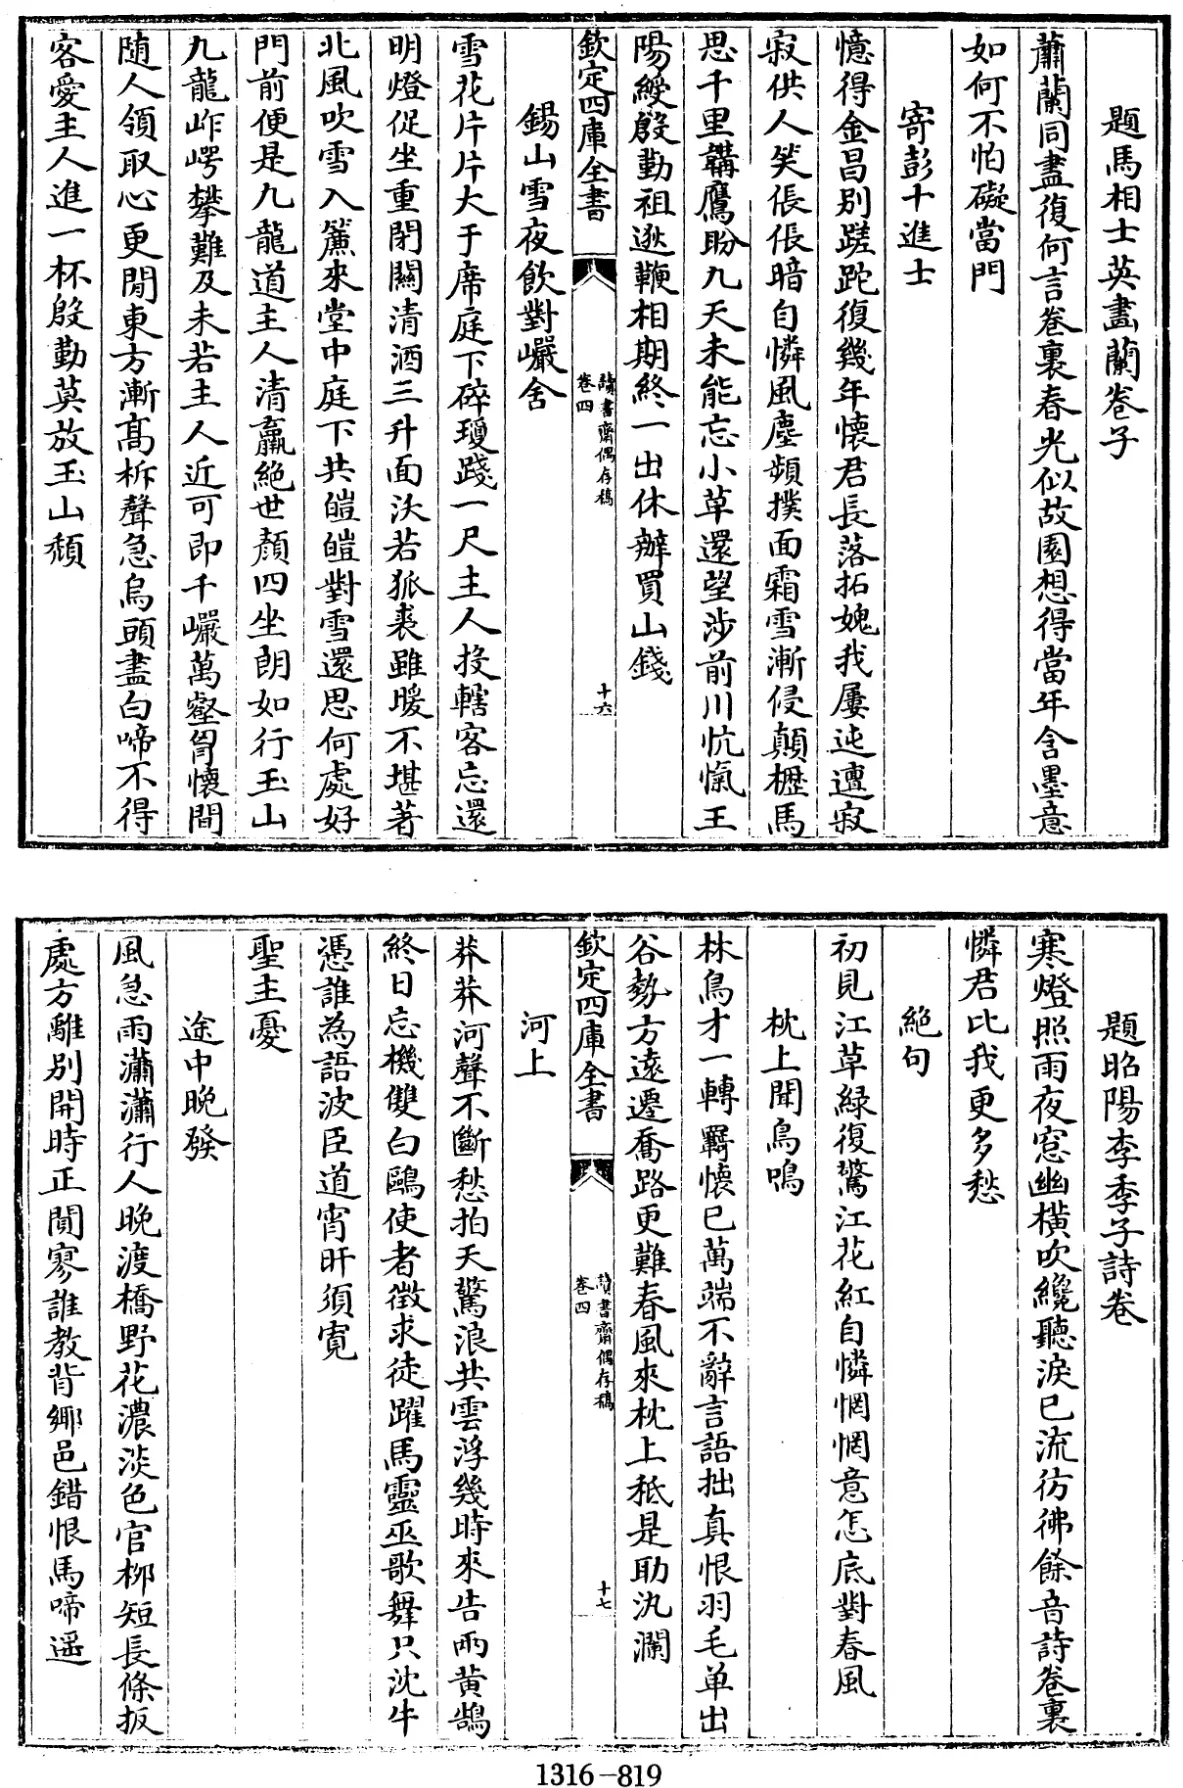 題馬相士英畫蘭卷子
蕭蘭同盡復何言卷裏春光似故園想得當年含墨意
如何不怕礙當門
寄彭十進士
憶得金昌別蹉跎復幾年懷君長落拓媿我屢迍邅寂
寂供人笑倀倀暗自憐風塵頻撲面霜雪漸侵顛櫪馬
思千里鞲鷹盼九天未能忘小草還望涉前川忼愾王
陽綬殷勤祖逖鞭相期終一出休辦買山錢
欽定四庫全書
讀書齋偶存稿
卷四
十六
錫山雪夜飲對巖舍
雪花片片大于席庭下碎瓊踐一尺主人投轄客忘還
明燈促坐重閉關清酒三升面汏若狐裘雖暖不堪著
北風吹雪入簾來堂中庭下共皚皚對雪還思何處好
門前便是九龍道主人清羸絕世顏四坐朗如行玉山
九龍岝崿攀難及未若主人近可即千巖萬壑胷懷間
隨人領取心更閒東方漸髙柝聲急烏頭盡白啼不得
客愛主人進一杯殷勤莫放玉山頹
題昭陽李季子詩卷
寒燈照雨夜窓幽橫吹纔聽淚已流彷彿餘音詩卷裏
憐君比我更多愁
絶句
初見江草緑復驚江花紅自憐惘惘意怎底對春風
枕上聞鳥鳴
林鳥才一轉羇懷已萬端不辭言語拙真恨羽毛单出
谷勢方遠遷喬路更難春風來枕上秪是助汍瀾
欽定四庫全書
讀書齋偶存稿
卷四
十七
河上
莽莽河聲不斷愁拍天驚浪共雲浮幾時來告兩黄鵠
終日忘機雙白鷗使者徴求徒躍馬靈巫歌舞只沈牛
憑誰為語波臣道宵旰須寛
聖主憂
途中晚發
風急雨瀟瀟行人晚渡橋野花濃淡色官栁短長條扳
處方離別開時正闃寥誰教背鄉邑錯恨馬啼遥
1316-819